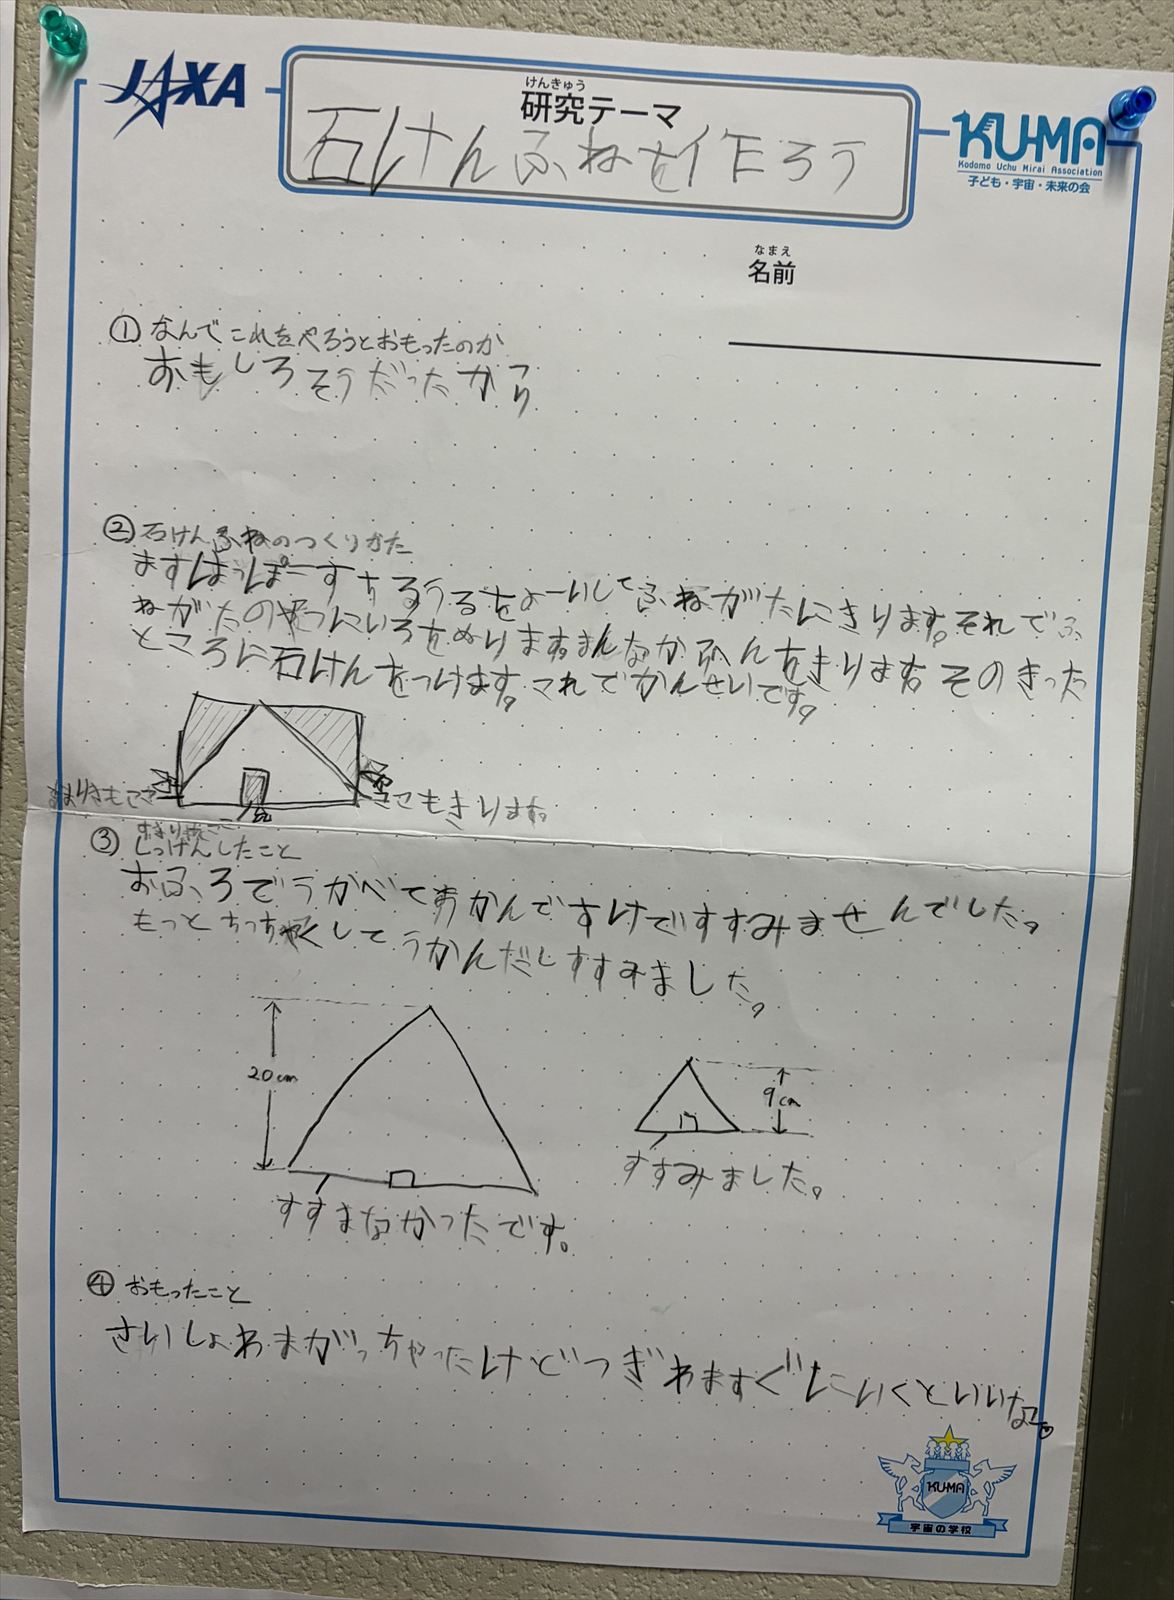 JAXA
けんきゅう
研究テーマ
石けんふねを作ろう
KU-MA
Kodomo Uchu Mirai Association
子ども・宇宙・未来の会
なまえ
名前
① なんでこれをやろうとおもったのか
おもしろそうだったから
② 石けんふねのつくりかた
ますはっぽーすちろうるをよーいしてふねがたにきります。それでふ
ねがたのやつにいろをぬります。まんなかふんをきります。そのきった
ところに石けんをつけます。これでかんせいです。
ここもきります
③ じっけんしたこと
おふろでうかべて すけですすみませんでした。
もっとちっちゃくしてうかんだしすすみました。
20cm
9cm
すすみました。
すすまなかったです。
④ おもったこと
さいしょわまがっちゃったけどつぎわますぐにいくといいな
KU-MA
宇宙の学校